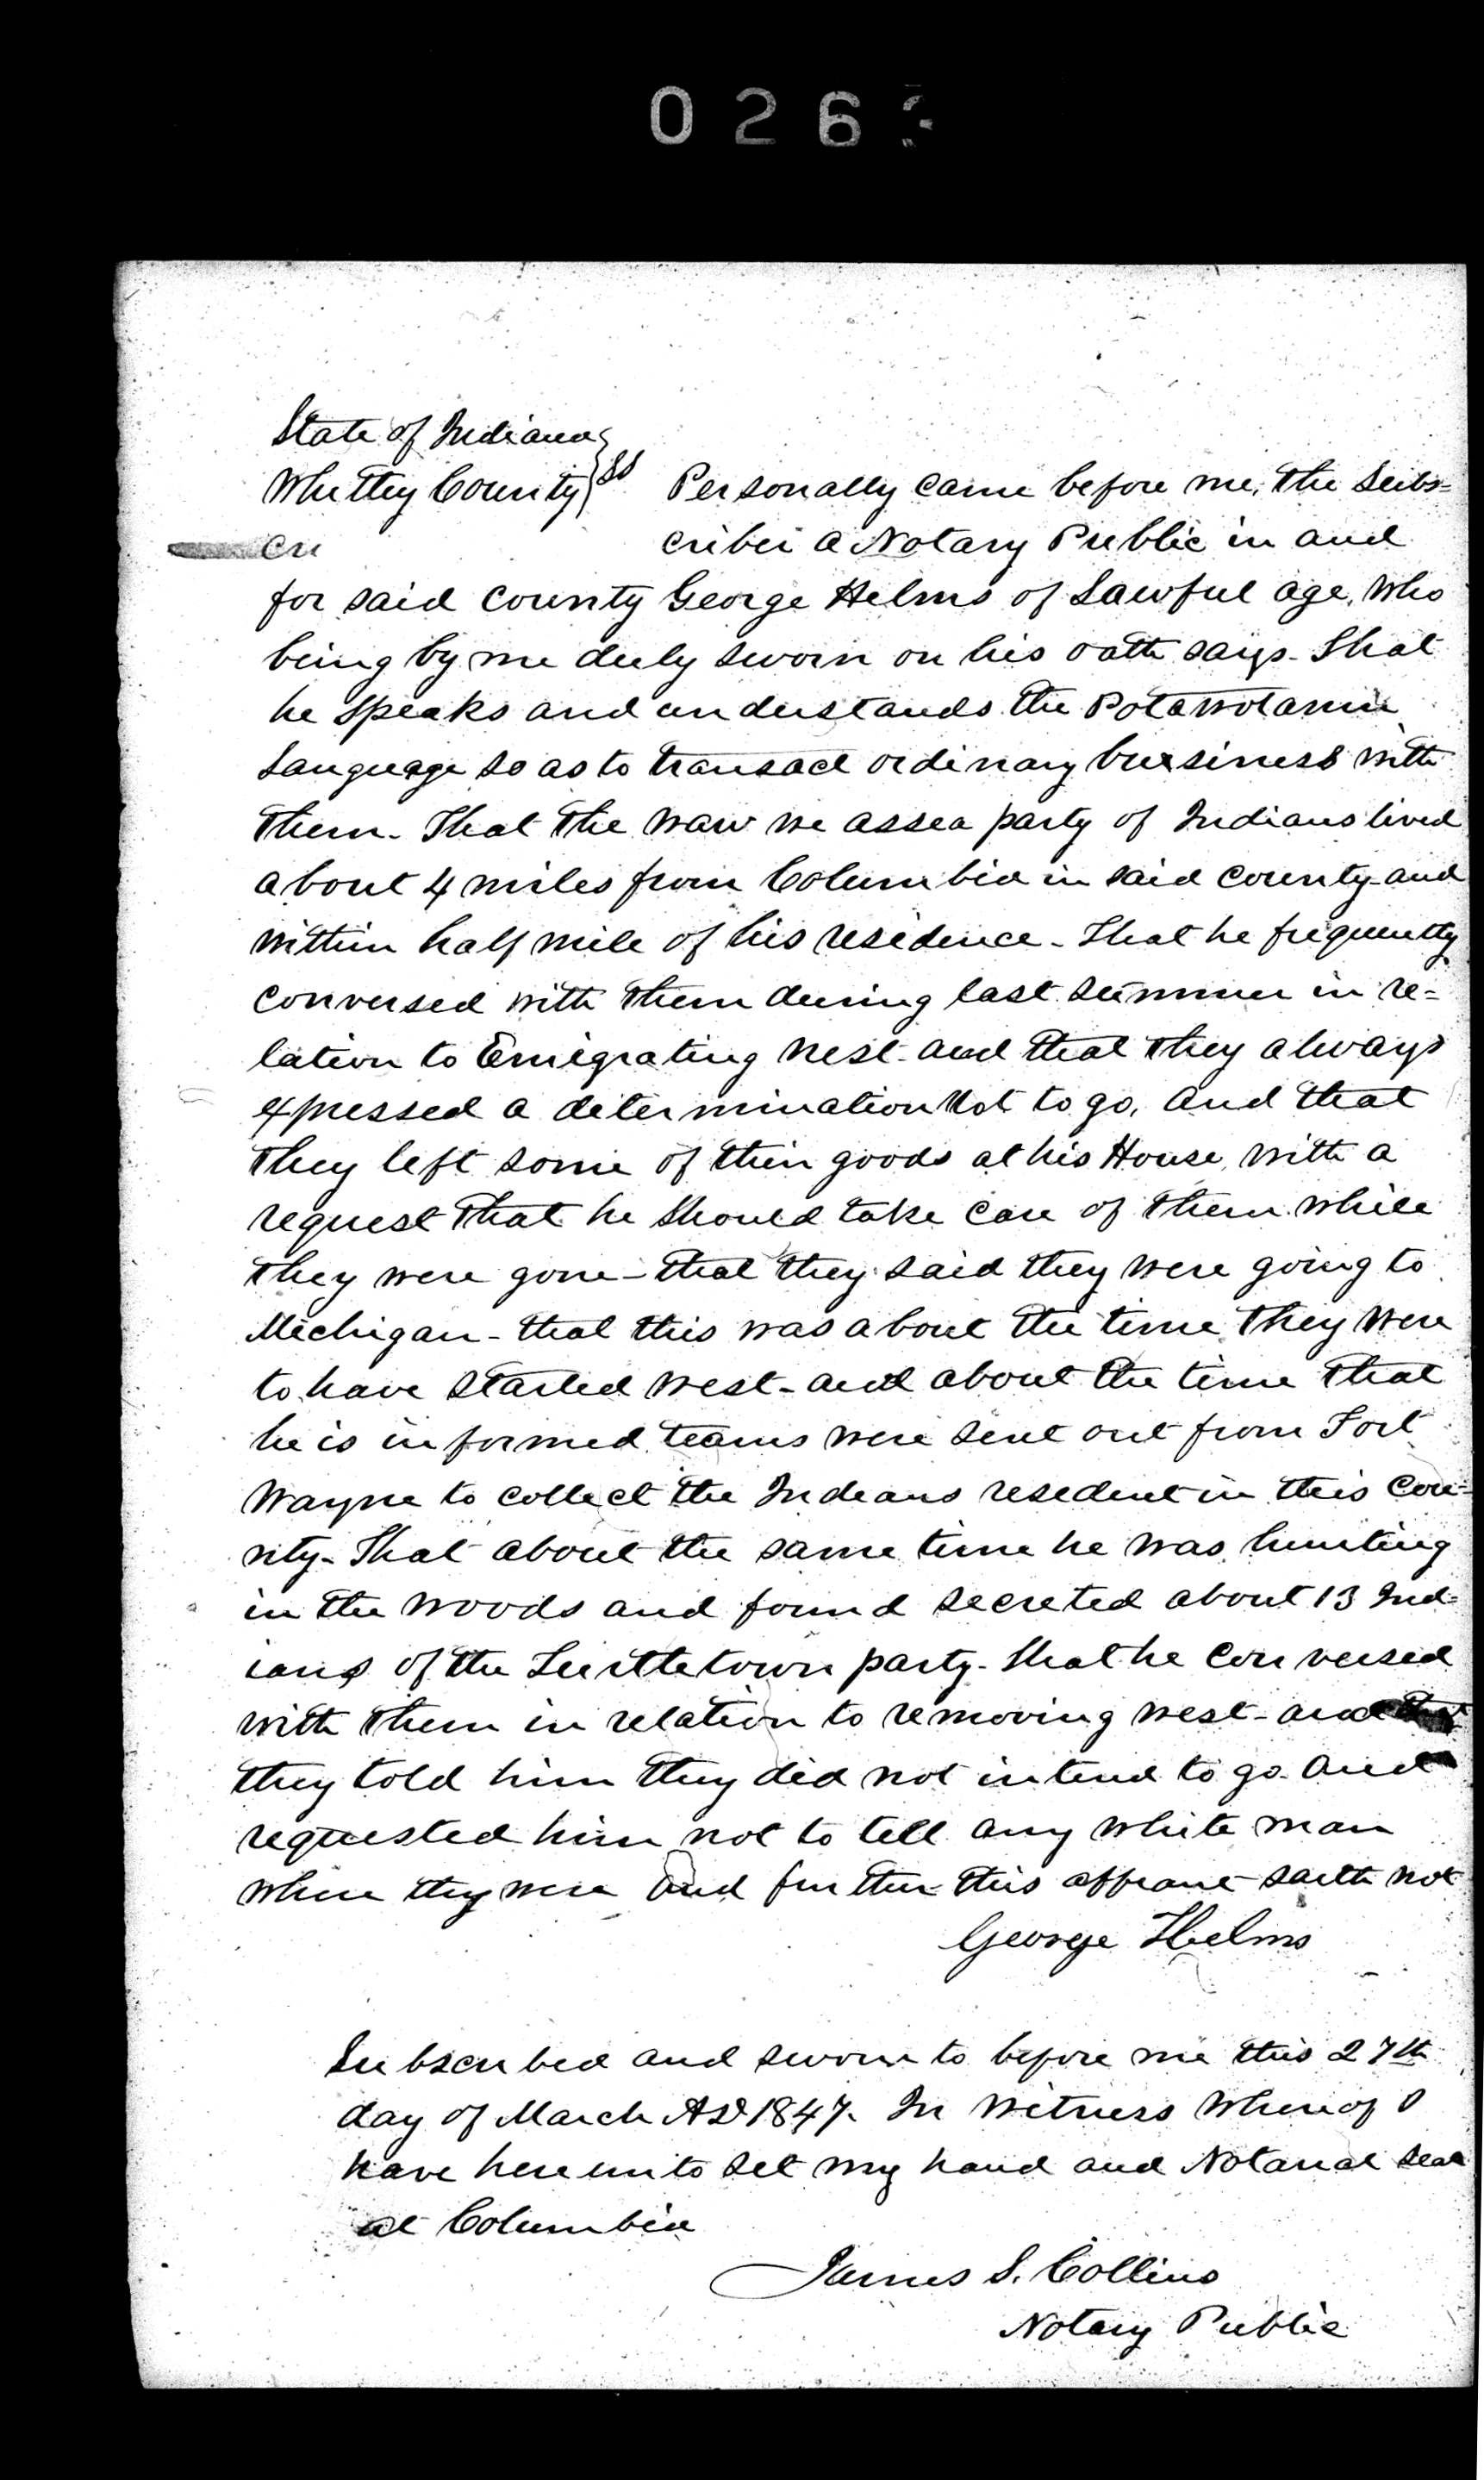 0263
State of Indiana
Whitley County } SS Personally came before me, the Subs=
cri criber a Notary Public in and
for said county George Helms of Lawful age, who
being by me duly sworn on his oath says - That
he speaks and understands the Potawotamie
Language so as to transact ordinary business with
them - That the Waw we assea party of Indians lived
about 4 miles from Columbia in said county - and
within half mile of his residence - That he frequently
conversed with them during last summer in re=
lation to Emigrating West - and that they always
expressed a determination Not to go, and that
they left some of their goods at his House, with a
request that he should take care of them while
they were gone - that they said they were going to
Michigan - that this was about the time they were
to have started west - and about the time that
he is informed teams were sent out from Fort
Wayne to collect the Indians resident in this Cou=
nty - That about the same time he was hunting
in the woods and found secreted about 13 Ind=
ians of the Turtletown party - that he conversed
with them in relation to removing west - and
they told him they did not intend to go - and
requested him not to tell any white man
where they were and further this affiant saith not
George Helms
Subscribed and sworn to before me this 27th
day of March AD 1847. In witness whereof I
have hereunto set my hand and Notarial seal
at Columbia
James S. Collins
Notary Public